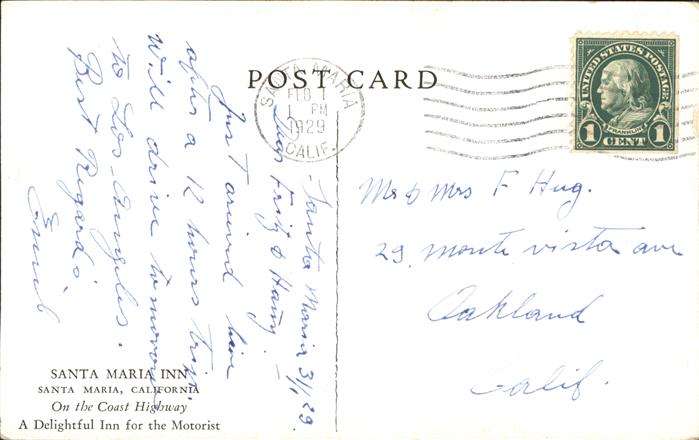 POST CARD
SANTA MARIA
FEB
1 PM
1929
CALIF.
UNITED STATES POSTAGE
FRANKLIN
1 CENT 1
Santa Maria 3/1, 29.
Dear Fritz &
Just arrived here
after a 12 hours trip.
Will drive tomorrow
to Los Angeles.
Best Regards
Mr & Mrs F Hug.
29. Monte vista ave
Oakland
Calif.
SANTA MARIA INN
SANTA MARIA, CALIFORNIA
On the Coast Highway
A Delightful Inn for the Motorist